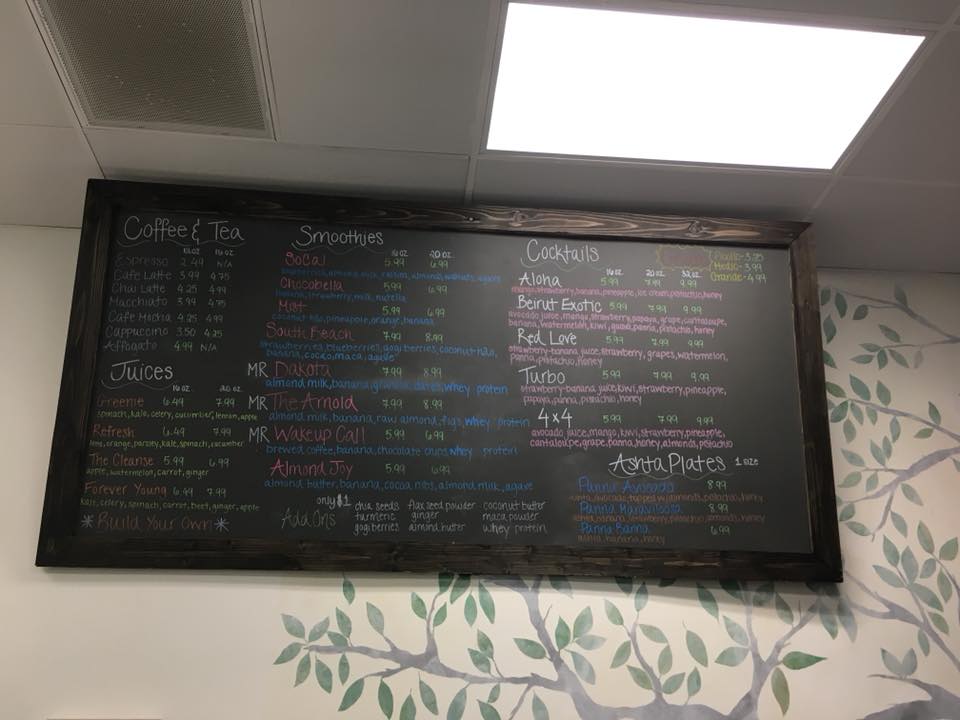 Coffee & Tea
12 oz 16 oz
Espresso 2.49 N/A
Cafe Latte 3.99 4.75
Chai Latte 4.25 4.99
Macchiato 3.99 4.75
Cafe Mocha 4.25 4.99
Cappuccino 3.50 4.25
Affogato 4.99 N/A
Juices
16 oz 20 oz
Greenie 6.49 7.99
spinach, kale, celery, cucumber, lemon, apple
Refresh 6.49 7.99
orange, parsley, kale, spinach, cucumber
The Cleanse 5.99 6.99
apple, watermelon, carrot, ginger
Forever Young 6.49 7.99
kale, celery, spinach, carrot, beet, ginger, apple
*Build Your Own*
Smoothies
16 oz 20 oz
SoCal 5.99 6.99
almond milk, raisins, almonds, walnuts, agave
Chocobella 5.99 6.99
banana, strawberry, milk, nutella
Mist 5.99 6.99
coconut h2o, pineapple, orange, banana
South Beach 7.99 8.99
strawberries, blueberries, goji berries, coconut h2o,
banana, cocao, maca, agave
MR Dakota 7.99 8.99
almond milk, banana, granola, dates, whey protein
MR The Arnold 7.99 8.99
almond milk, banana, raw almond, figs, whey protein
MR Wakeup Call 5.99 6.99
brewed coffee, banana, chocolate chips, whey protein
Almond Joy 5.99 6.99
almond butter, banana, cocoa nibs, almond milk, agave
only $1
Add Ons
chia seeds flax seed powder coconut butter
turmeric ginger maca powder
gogi berries almond butter whey protein
Cocktails
16 oz 20 oz 32 oz
Aloha 5.99 7.99 9.99
mango, strawberry, banana, pineapple, ice cream, pistachio, honey
Beirut Exotic 5.99 7.99 9.99
avocado juice, mango, strawberry, papaya, grape, cantaloupe,
banana, watermelon, kiwi, guava, panna, pistachio, honey
Red Love 5.99 7.99 9.99
strawberry-banana juice, strawberry, grapes, watermelon,
panna, pistachio, honey
Turbo 5.99 7.99 9.99
strawberry-banana juice, kiwi, strawberry, pineapple,
papaya, panna, pistachio, honey
4x4 5.99 7.99 9.99
avocado juice, mango, kiwi, strawberry, pineapple,
cantaloupe, grape, panna, honey, almonds, pistachio
Piccolo-3.25
Medio-3.99
Grande-4.99
Ashta Plates 1 size
Panna Avocado 8.99
ashta, avocado topped w/almonds, pistachio, honey
Panna Maravillosa 8.99
ashta, banana, strawberry, pistachio, almonds, honey
Panna Banna 6.99
ashta, banana, honey